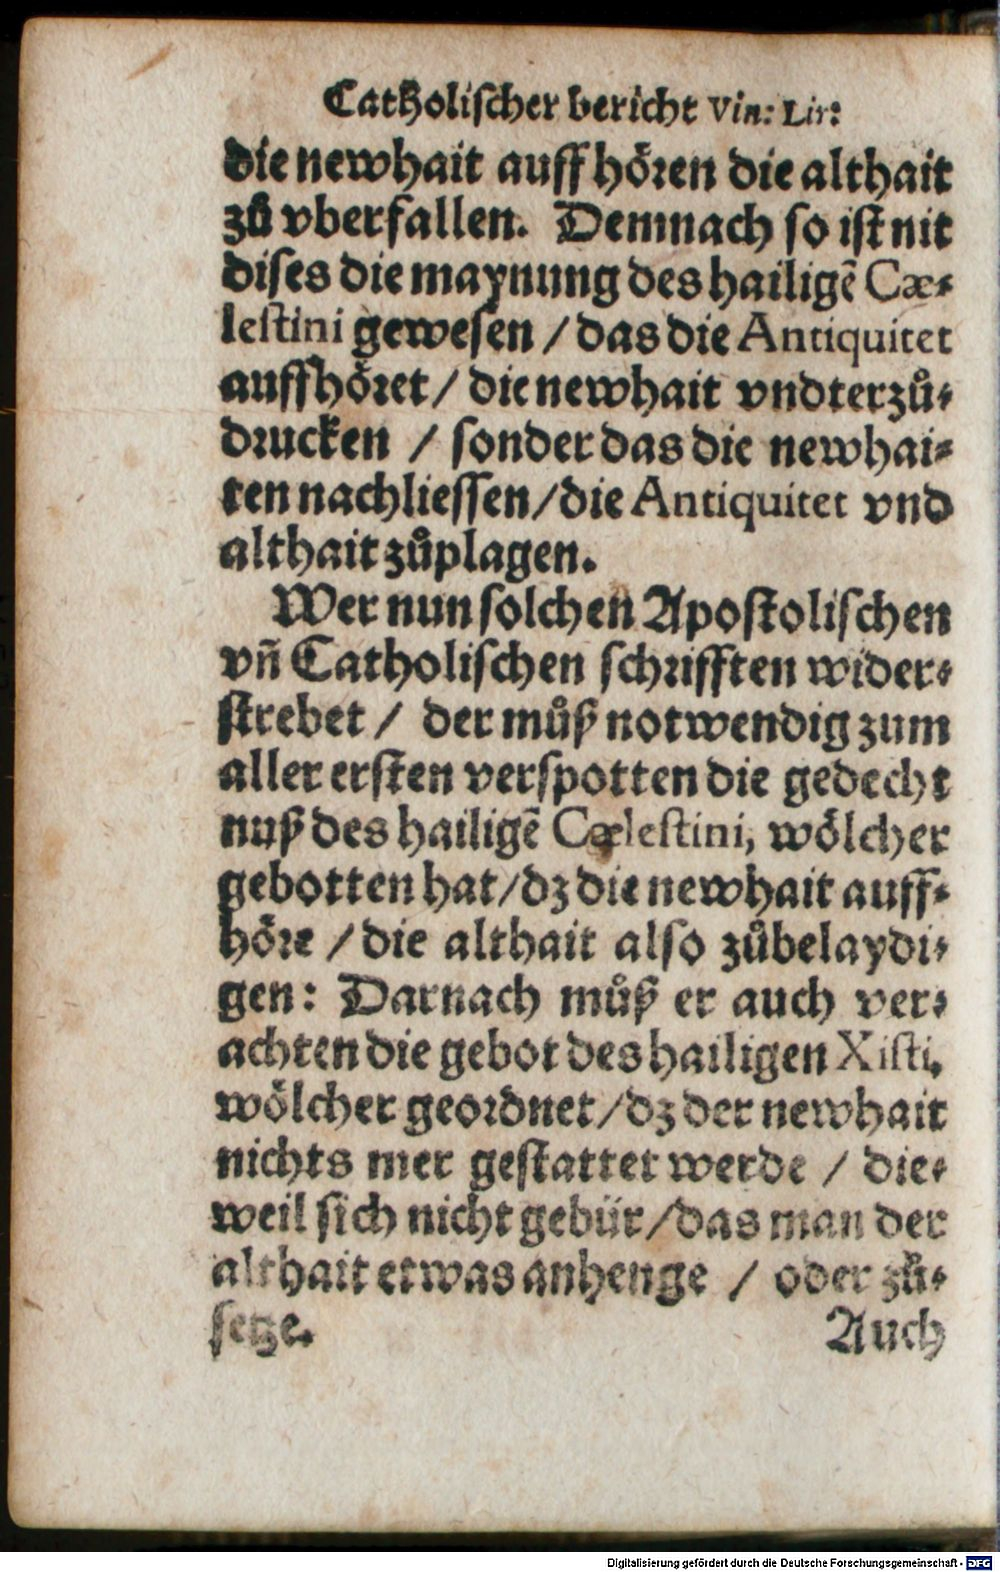 Catholischer bericht Vin: Lir:
die newhait auffhören die althait
zů vberfallen. Demnach so ist nit
dises die maynung des hailigẽ Cæ-
lestini gewesen / das die Antiquitet
auffhöret / die newhait vndterzů-
drucken / sonder das die newhai-
ten nachliessen / die Antiquitet vnd
althait zůplagen.
Wer nun solchen Apostolischen
vñ Catholischen schrifften wider-
strebet / der můß notwendig zum
aller ersten verspotten die gedecht
nuß des hailigẽ Cælestini, wölcher
gebotten hat / dz die newhait auff-
höre / die althait also zůbelaydi-
gen: Darnach můß er auch ver-
achten die gebot des hailigen Xisti,
wölcher geordnet / dz der newhait
nichts mer gestattet werde / die-
weil sich nicht gebür / das man der
althait etwas anhenge / oder zů-
setze. Auch
Digitalisierung gefördert durch die Deutsche Forschungsgemeinschaft - DFG